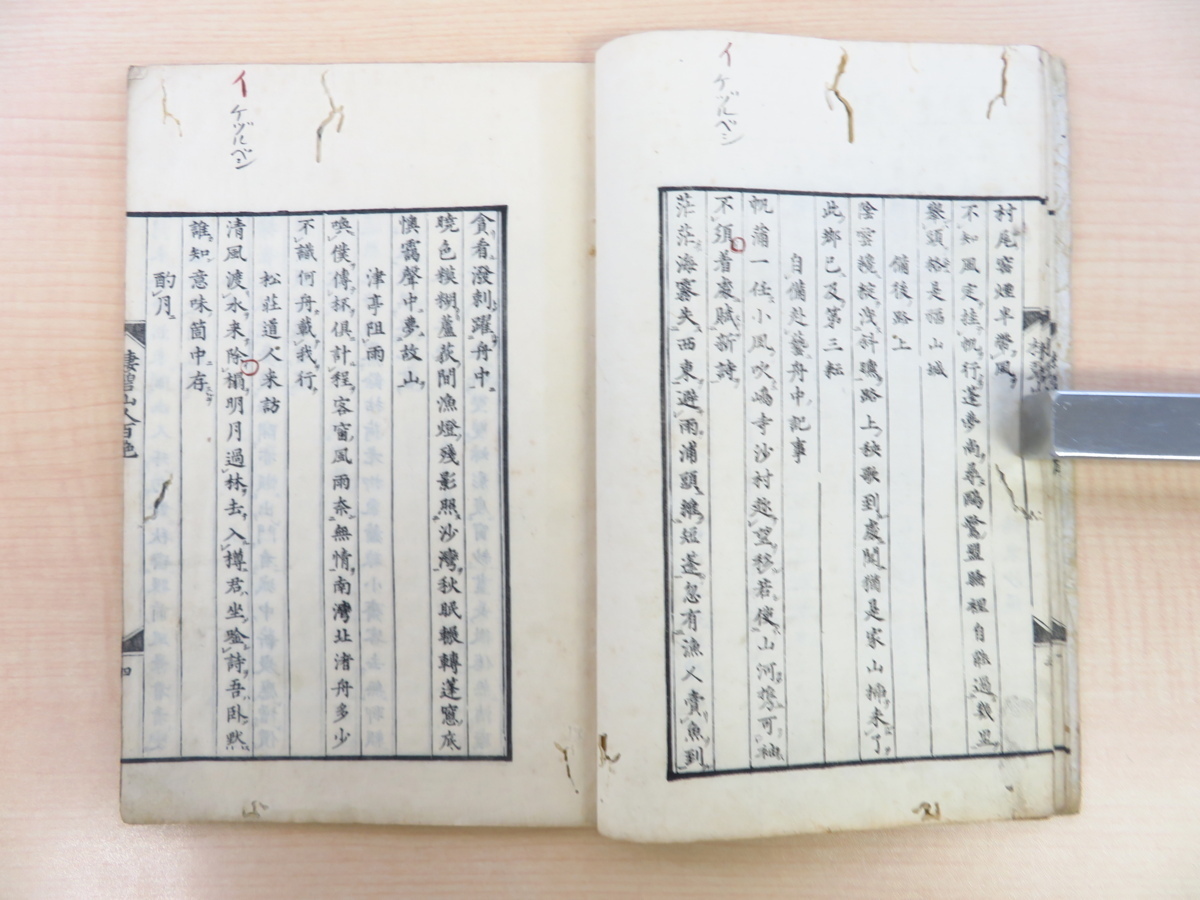 イ
ケヅルベシ
村尾窑煙半帶風
不知風定挂帆行蓬夢尚尋鷗鷺盟睡裡自能過幾里
擧頭恰是福山城
備後路上
陰雲擁被洩斜路上秧歌到處聞猶是家山揷未了
此鄉已及第三耘
自備赴藝舟中記事
帆蒲一任小風吹嶋寺沙村趁望移若使山河可袖
不須着處賦新詩
茫茫海霧失西東避雨浦頭維短蓬忽有漁人賣魚到
イ
ケヅルベシ
貪看潑剌躍舟中
曉色糢糊蘆荻間漁燈殘影照沙灣秋眠輾轉蓬窓底
懊靄聲中夢故山
津亭阻雨
喚僕傳杯俱計程客窗風雨奈無情南灣北渚舟多少
不識何舟載我行
松莊道人來訪
清風渡水来除榻明月過林去入樽君坐吟詩吾臥默
誰知意味箇中存
酌月
山人百絶
四